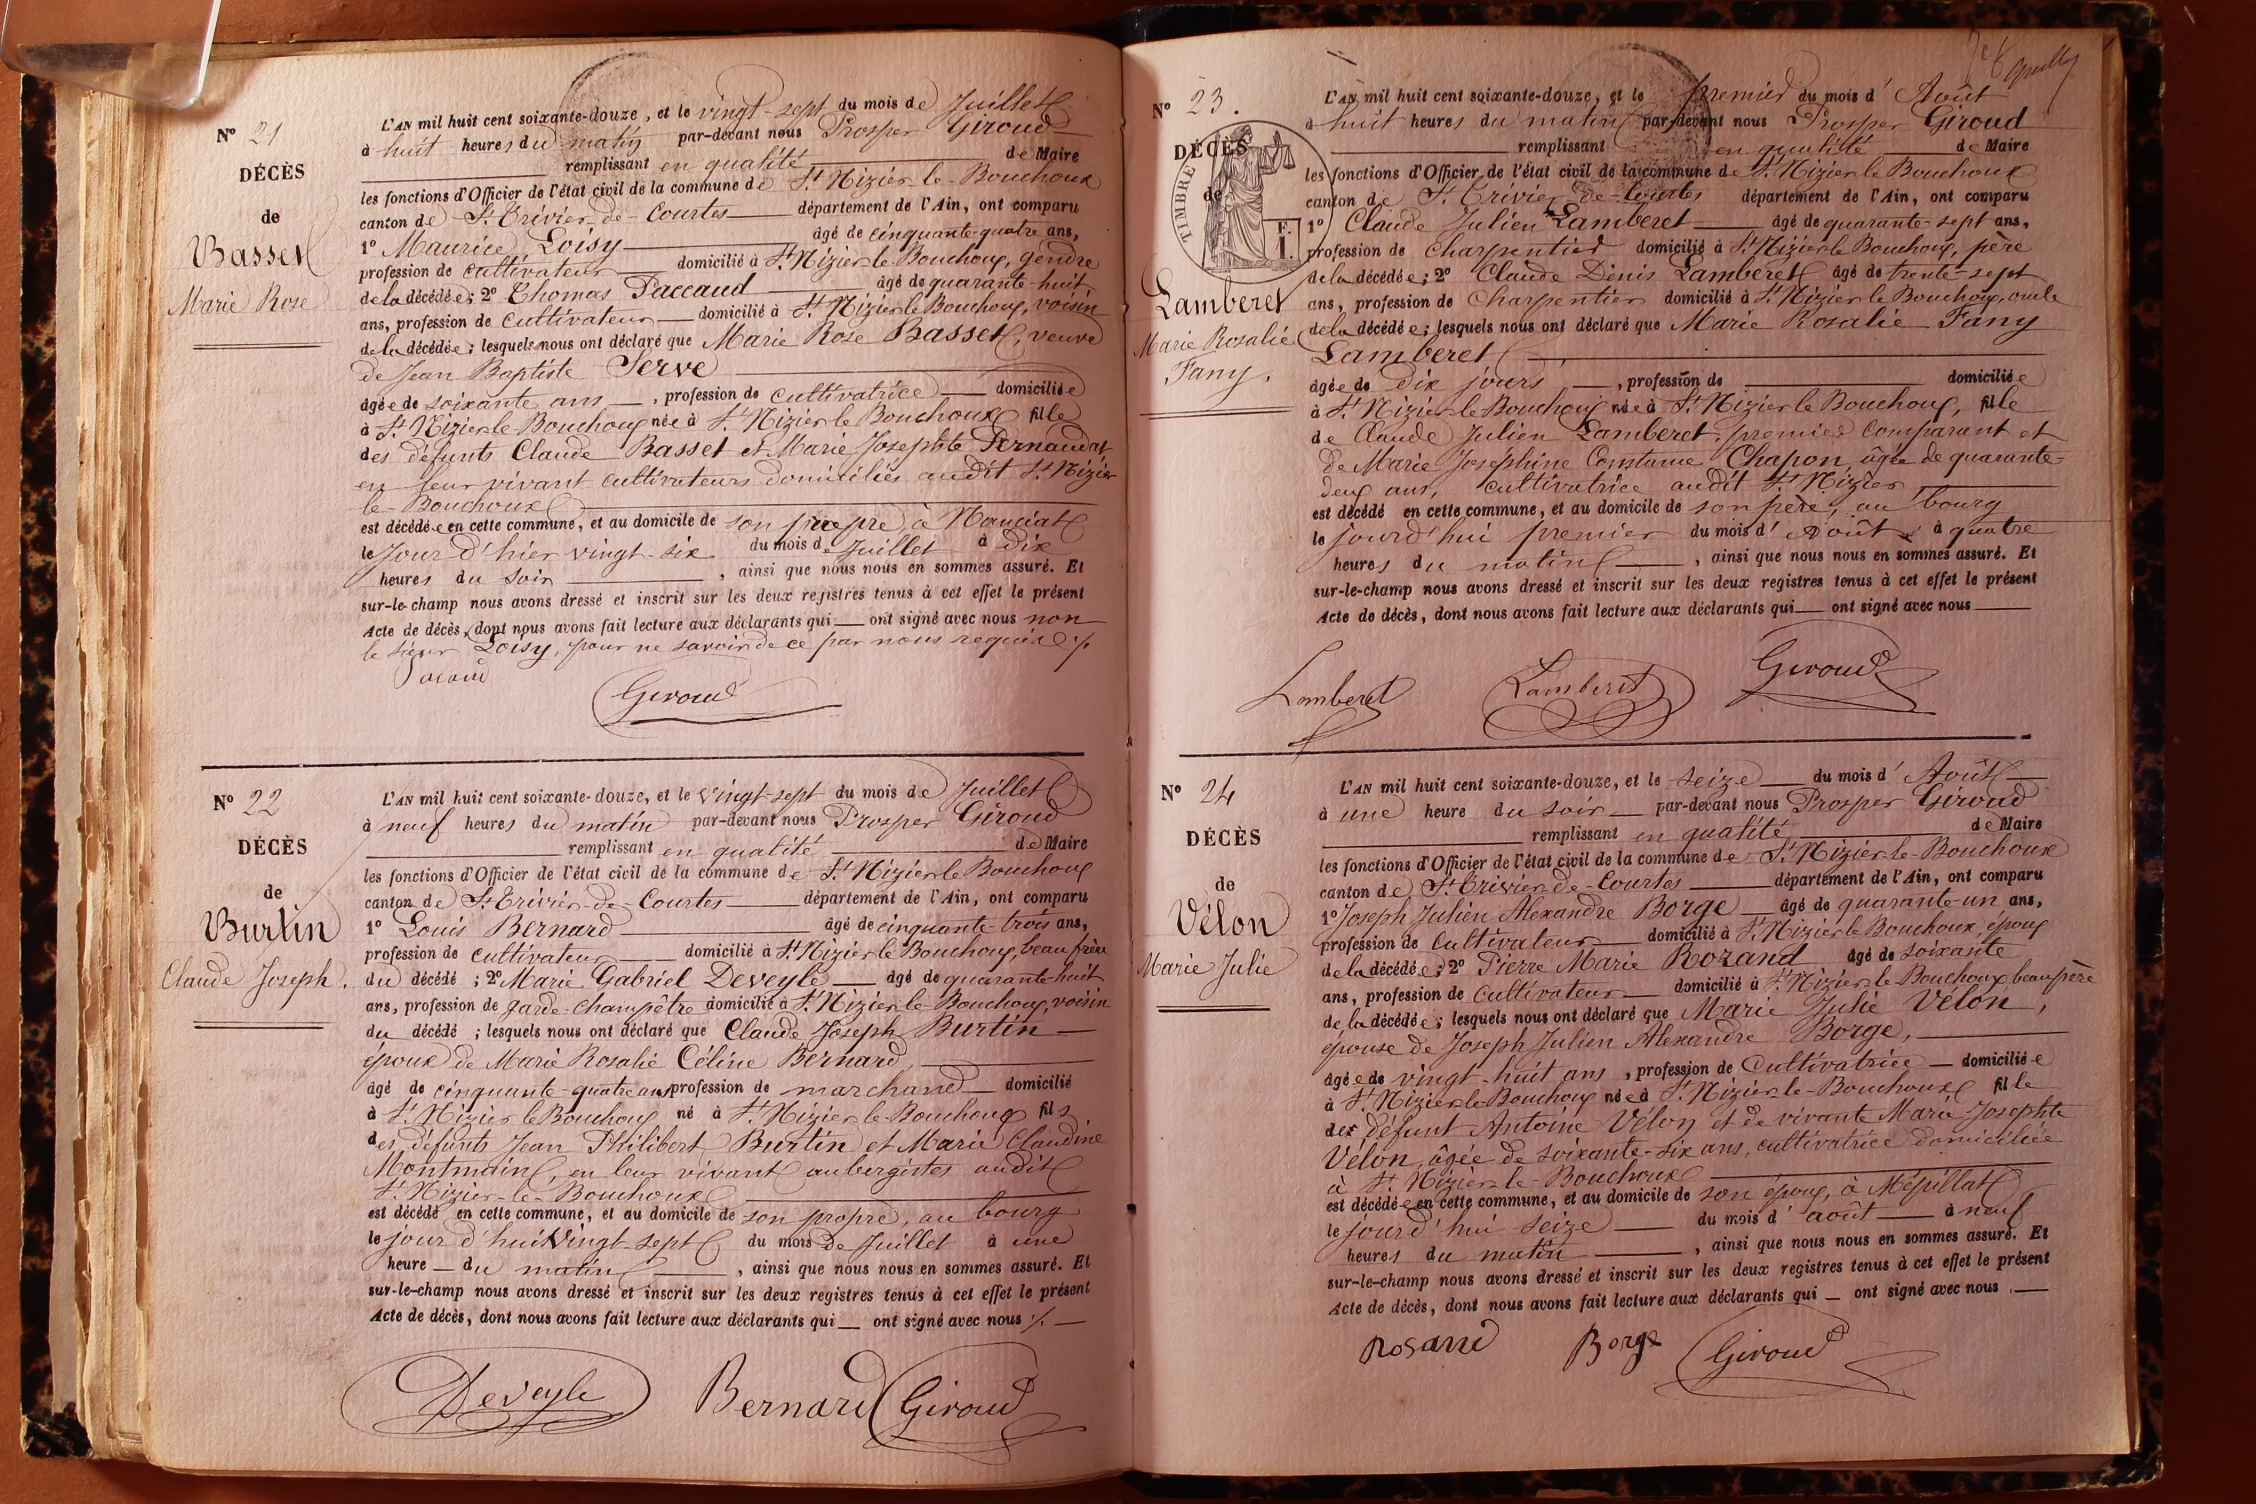 N° 21
DÉCÈS
de
Basset
Marie Rose
L'AN mil huit cent soixante-douze, et le vingt-sept du mois de Juillet
à huit heures du matin par-devant nous Prosper Giroud
remplissant en qualité de Maire
les fonctions d'Officier de l'état civil de la commune de St Nizier-le-Bouchoux
canton de St Trivier-de-Courtes département de l'Ain, ont comparu
1° Maurice Loisy âgé de cinquante-quatre ans,
profession de cultivateur domicilié à St Nizier-le-Bouchoux, gendre
de la décédée; 2° Thomas Paccaud âgé de quarante-huit
ans, profession de cultivateur domicilié à St Nizier le Bouchoux, voisin
de la décédée; lesquels nous ont déclaré que Marie Rose Basset, veuve
de Jean Baptiste Serve
âgée de soixante ans, profession de cultivatrice domiciliée
à St Nizier le Bouchoux née à St Nizier le Bouchoux fille
des défunts Claude Basset et Marie Josephte Pernaudat
en leur vivant cultivateurs domiciliés audit St Nizier
le-Bouchoux
est décédée en cette commune, et au domicile de son propre à Nanciat
le jour d'hier vingt-six du mois de Juillet à dix
heures du soir, ainsi que nous nous en sommes assuré. Et
sur-le-champ nous avons dressé et inscrit sur les deux registres tenus à cet effet le présent
Acte de décès, dont nous avons fait lecture aux déclarants qui ont signé avec nous non
le sieur Loisy, pour ne savoir de ce par nous requis ./.
Giroud
N° 22
DÉCÈS
de
Burtin
Claude Joseph.
L'AN mil huit cent soixante-douze, et le vingt-sept du mois de Juillet
à neuf heures du matin par-devant nous Prosper Giroud
remplissant en qualité de Maire
les fonctions d'Officier de l'état civil de la commune de St Nizier le Bouchoux
canton de St Trivier-de-Courtes département de l'Ain, ont comparu
1° Louis Bernard âgé de cinquante-trois ans,
profession de cultivateur domicilié à St Nizier le Bouchoux, beau frère
du décédé; 2° Marie Gabriel Deveyle âgé de quarante-huit
ans, profession de garde-champêtre domicilié à St Nizier-le-Bouchoux, voisin
du décédé; lesquels nous ont déclaré que Claude Joseph Burtin
époux de Marie Rosalie Céline Bernard
âgé de cinquante-quatre ans profession de marchand domicilié
à St Nizier le Bouchoux né à St Nizier-le-Bouchoux fils
des défunts Jean Philibert Burtin et Marie Claudine
Montmain, en leur vivant aubergistes audit
St Nizier-le-Bouchoux
est décédé en cette commune, et au domicile de son propre, au bourg
le jour d'hui vingt-sept du mois de Juillet à une
heure du matin, ainsi que nous nous en sommes assuré. Et
sur-le-champ nous avons dressé et inscrit sur les deux registres tenus à cet effet le présent
Acte de décès, dont nous avons fait lecture aux déclarants qui ont signé avec nous ./.
Deveyle Bernard Giroud
N° 23.
DÉCÈS
de
TIMBRE
F. 1.
Lamberet
Marie Rosalie
Fany.
L'AN mil huit cent soixante-douze, et le premier du mois d'Août
à huit heures du matin par-devant nous Prosper Giroud
remplissant en qualité de Maire
les fonctions d'Officier de l'état civil de la commune de St Nizier le Bouchoux
canton de St Trivier-de-Courtes département de l'Ain, ont comparu
1° Claude Julien Lamberet âgé de quarante-sept ans,
profession de charpentier domicilié à St Nizier le Bouchoux, père
de la décédée; 2° Claude Denis Lamberet âgé de trente-sept
ans, profession de charpentier domicilié à St Nizier le Bouchoux, oncle
de la décédée; lesquels nous ont déclaré que Marie Rosalie Fany
Lamberet
âgée de dix jours, profession de domiciliée
à St Nizier le Bouchoux née à St Nizier le Bouchoux, fille
de Claude Julien Lamberet, premier comparant et
de Marie Joséphine Constance Chapon, âgée de quarante-
deux ans, cultivatrice audit St Nizier
est décédé en cette commune, et au domicile de son père, au bourg
le jourd'hui premier du mois d'Août à quatre
heures du matin, ainsi que nous nous en sommes assuré. Et
sur-le-champ nous avons dressé et inscrit sur les deux registres tenus à cet effet le présent
Acte de décès, dont nous avons fait lecture aux déclarants qui ont signé avec nous
Lamberet Lamberet Giroud
N° 24
DÉCÈS
de
Vélon
Marie Julie
L'AN mil huit cent soixante-douze, et le seize du mois d'Août
à une heure du soir par-devant nous Prosper Giroud
remplissant en qualité de Maire
les fonctions d'Officier de l'état civil de la commune de St Nizier-le-Bouchoux
canton de St Trivier-de-Courtes département de l'Ain, ont comparu
1° Joseph Julien Alexandre Borge âgé de quarante-un ans,
profession de cultivateur domicilié à St Nizier le Bouchoux, époux
de la décédée; 2° Pierre Marie Rozand âgé de soixante
ans, profession de cultivateur domicilié à St Nizier-le-Bouchoux, beau père
de la décédée; lesquels nous ont déclaré que Marie Julie Vélon,
épouse de Joseph Julien Alexandre Borge,
âgée de vingt-huit ans, profession de Cultivatrice domiciliée
à St Nizier-le-Bouchoux née à St Nizier-le-Bouchoux fille
des défunt Antoine Vélon et de vivante Marie Josephte
Vélon, âgée de soixante-six ans, cultivatrice domiciliée
à St Nizier-le-Bouchoux
est décédée en cette commune, et au domicile de son époux, à Mépillat
le jourd'hui seize du mois d'août à neuf
heures du matin, ainsi que nous nous en sommes assuré. Et
sur-le-champ nous avons dressé et inscrit sur les deux registres tenus à cet effet le présent
Acte de décès, dont nous avons fait lecture aux déclarants qui ont signé avec nous.
Rosand Borge Giroud